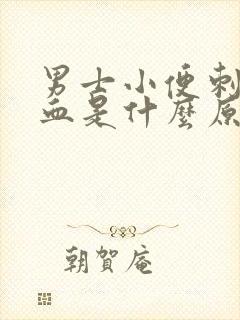 男士小便刺
血是什麼原
朝賀庵